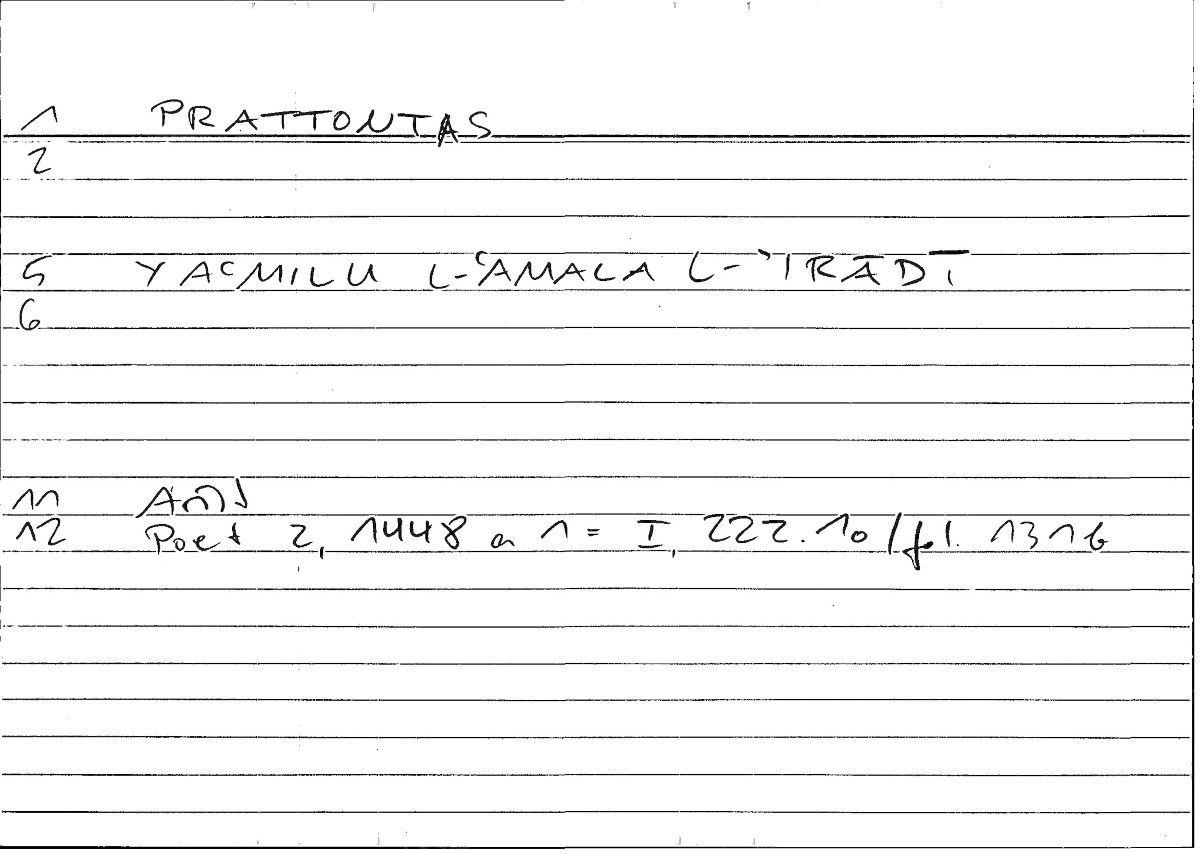 1 PRATTONTAS
2
5 YAʿMILU L-ʿAMALA L-ʾIRĀDĪ
6
11
12 Poet 2, 1448 a 1 = I, 222.10/fol. 131b